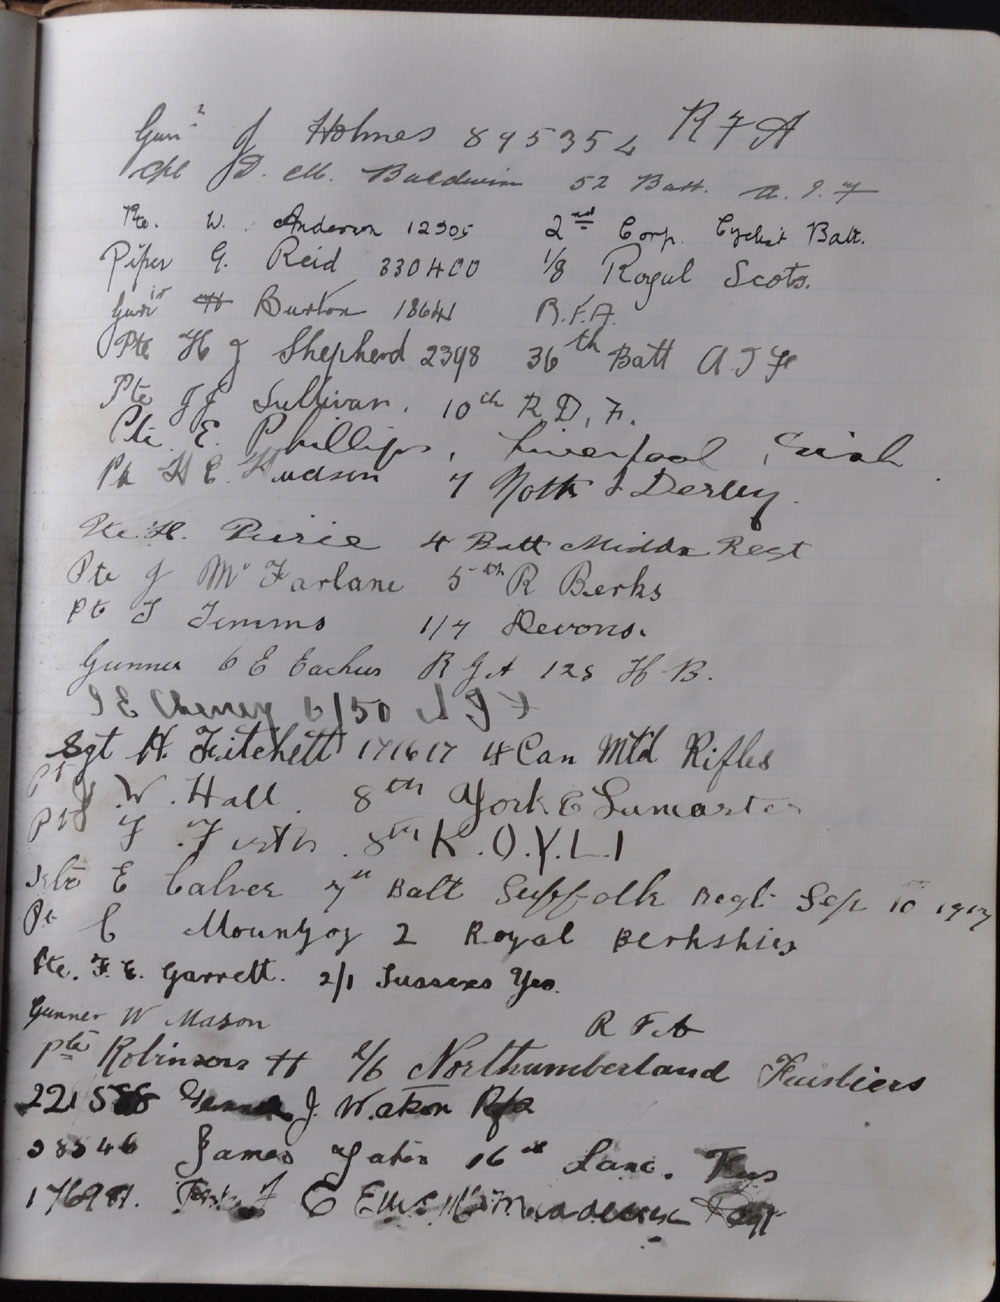 Gunr J Holmes 895354 R F A
Cpl D. M. Baldwin 52 Batt. A. I. F
Pte. W. Anderson 12305 2nd Corp. Cyclist Batt.
Piper G. Reid 330400 1/8 Royal Scots.
Gunr H Burton 18641 R.F.A.
Pte H J Shepherd 2398 36th Batt A I F
Pte J J Sullivan. 10th R. D. F.
Pte E. Phillips, Liverpool Irish
Pte H E. Hudson 7 Notts & Derby.
Pte. H. Pirie 4 Batt Middx Regt
Pte J McFarlane 5th R Berks
Pte T Timms 1/7 Devons.
Gunner C E Eachus R G A 125 H-B.
E Cheney 6/50
Sgt H. Fitchett 171617 4 Can Mtd Rifles
Pte W. Hall. 8th York & Lancaster
Pte F. Firth. 8th K.O.Y.L.I
E Calver 7th Batt Suffolk Regt Sep 10th 1917
Pte C Mountjoy 2 Royal Berkshires
Pte. F. E. Garrett. 2/1 Sussex Yeo.
Gunner W Mason R F A
Pte Robinson H 2/6 Northumberland Fusiliers
221588 J. Watson RFA
38546 James Yates 16th Lanc. Fus
E Ellis Regt